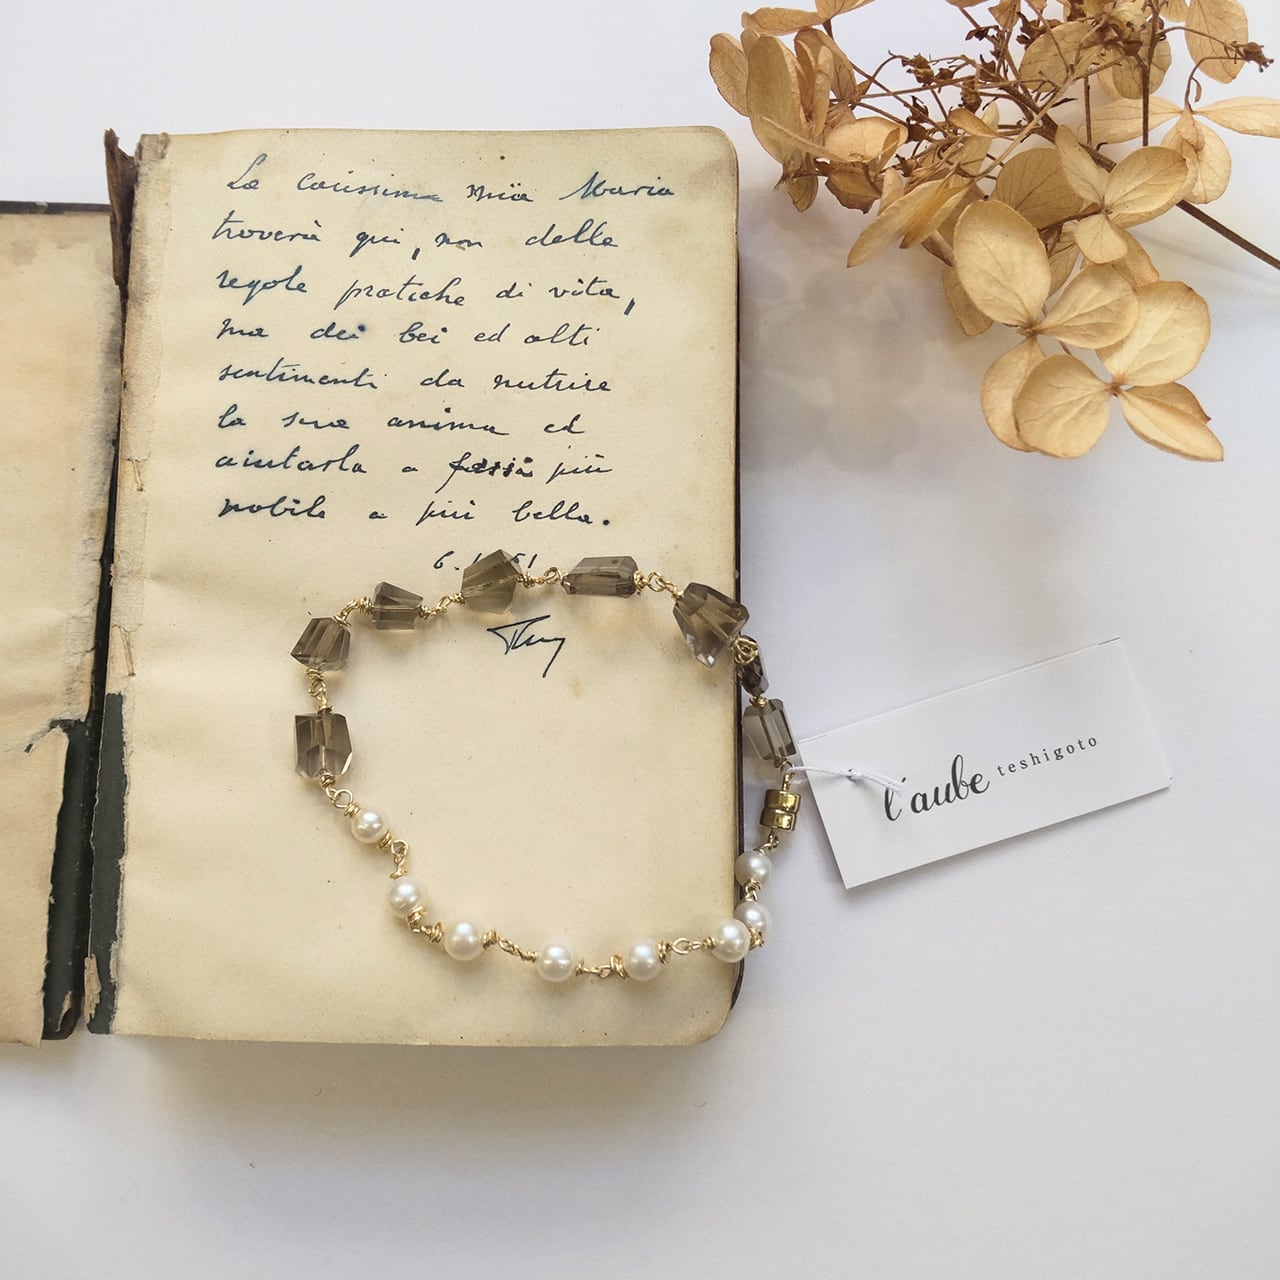 La carissima mia Maria
troverà qui, non delle
regole pratiche di vita,
ma dei bei ed alti
sentimenti da nutrire
la sua anima ed
aiutarla a farsi più
nobile e più bella.
l'aube teshigoto